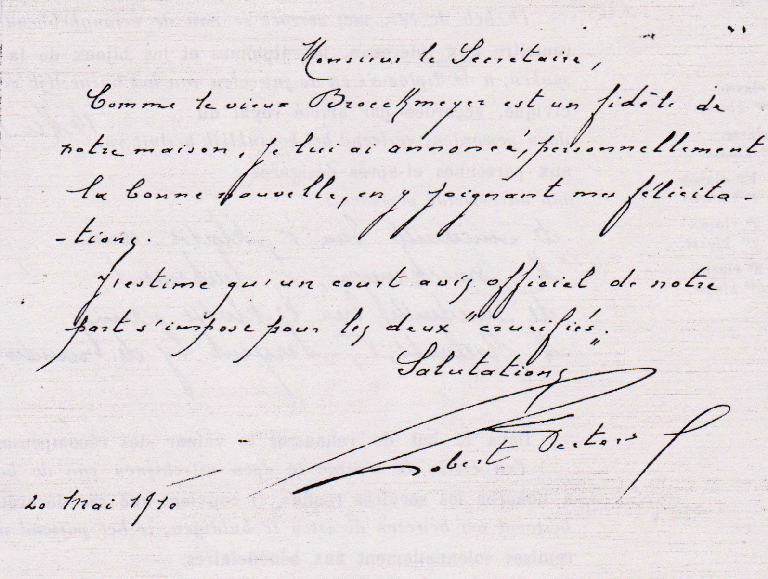 Monsieur le Secrétaire,
Comme le vieux Broeckmeyer est un fidèle de
notre maison, je lui ai annoncé, personnellement
la bonne nouvelle, en y joignant mes félicita-
-tions.
J'estime qu'un court avis officiel de notre
part s'impose pour les deux "crucifiés".
Salutations
Robert Peeters
20 Mai 1910